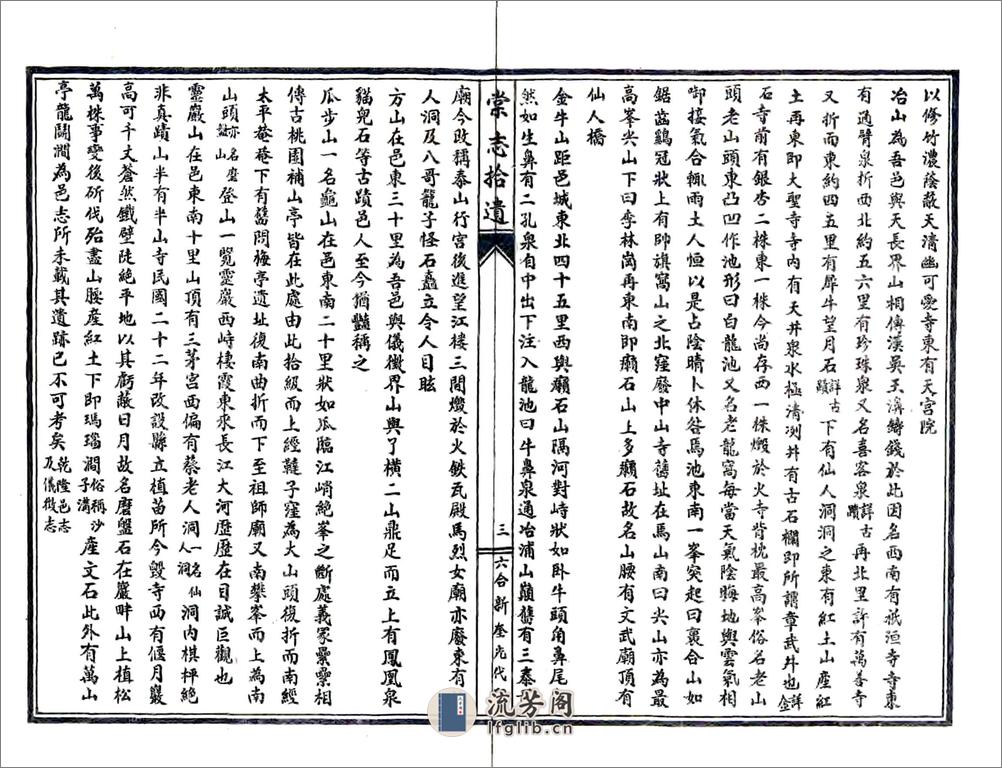 以修竹濃蔭蔽天清幽可愛寺東有天宮院
冶山為吾邑與天長界山相傳漢吳王濞鑄錢於此因名西南有祇洹寺寺東
有通臂泉折西北約五六里有珍珠泉又名喜客泉詳古蹟再北里許有萬善寺
又折而東約四五里有犀牛望月石詳古蹟下有仙人洞洞之東有紅土山產紅
土再東即大聖寺寺內有天井泉水極清冽井有古石欄即所謂章武井也詳金
石寺前有銀杏二株東一株今尚存西一株燬於火寺背枕最高峯俗名老山
頭老山頭東凸凹作池形曰白龍池又名老龍窩每當天氣陰晦地輿雲氣相
啣接氣合輒雨土人恒以是占陰晴卜休咎馬池東南一峯突起曰裏合山如
鋸齒鷄冠狀上有帥旗窩山之北窪廢中山寺舊址在馬山南曰尖山亦為最
高峯尖山下曰李林崗再東南即癩石山上多癩石故名山腰有文武廟頂有
仙人橋
金牛山距邑城東北四十五里西與癩石山隔河對峙狀如卧牛頭角鼻尾
然如生鼻有二孔泉有中出下注入龍池曰牛鼻泉通冶浦山巔舊有三泰
棠志拾遺
三
六合新
奎光代
廟今改稱泰山行宮後進望江樓三間燬於火鉄瓦殿馬烈女廟亦廢東有
人洞及八哥龍子怪石矗立令人目眩
方山在邑東三十里為吾邑與儀徵界山與丫橫二山鼎足而立上有鳳凰泉
貓兒石等古蹟邑人至今猶豔稱之
瓜步山一名龜山在邑東南二十里狀如瓜臨江峭絶峯之斷處義冢纍纍相
傳古桃園補山亭皆在此處由此拾級而上經韃子窪為大山頭復折而南經
太平菴菴下有舊問梅亭遺址復南曲折而下至祖師廟又南攀峯而上為南
山頭亦名磨盤山登山一覽靈巖西峙棲霞東來長江大河歷歷在目誠巨觀也
靈巖山在邑東南十里山頂有三茅宮西偏有蔡老人洞一名仙人洞洞內棋枰絶
非真蹟山半有半山寺民國二十二年改設縣立植苗所今毀寺西有偃月巖
高可千丈蒼然鐵壁陡絶平地以其虧蔽日月故名磨盤石在巖畔山上植松
萬株事變後斫伐殆盡山腰產紅土下即瑪瑙澗俗稱沙子溝產文石此外有萬山
亭龍鬭澗為邑志所未載其遺跡已不可考矣乾隆邑志及儀徵志
流芳阁
lfglib.cn